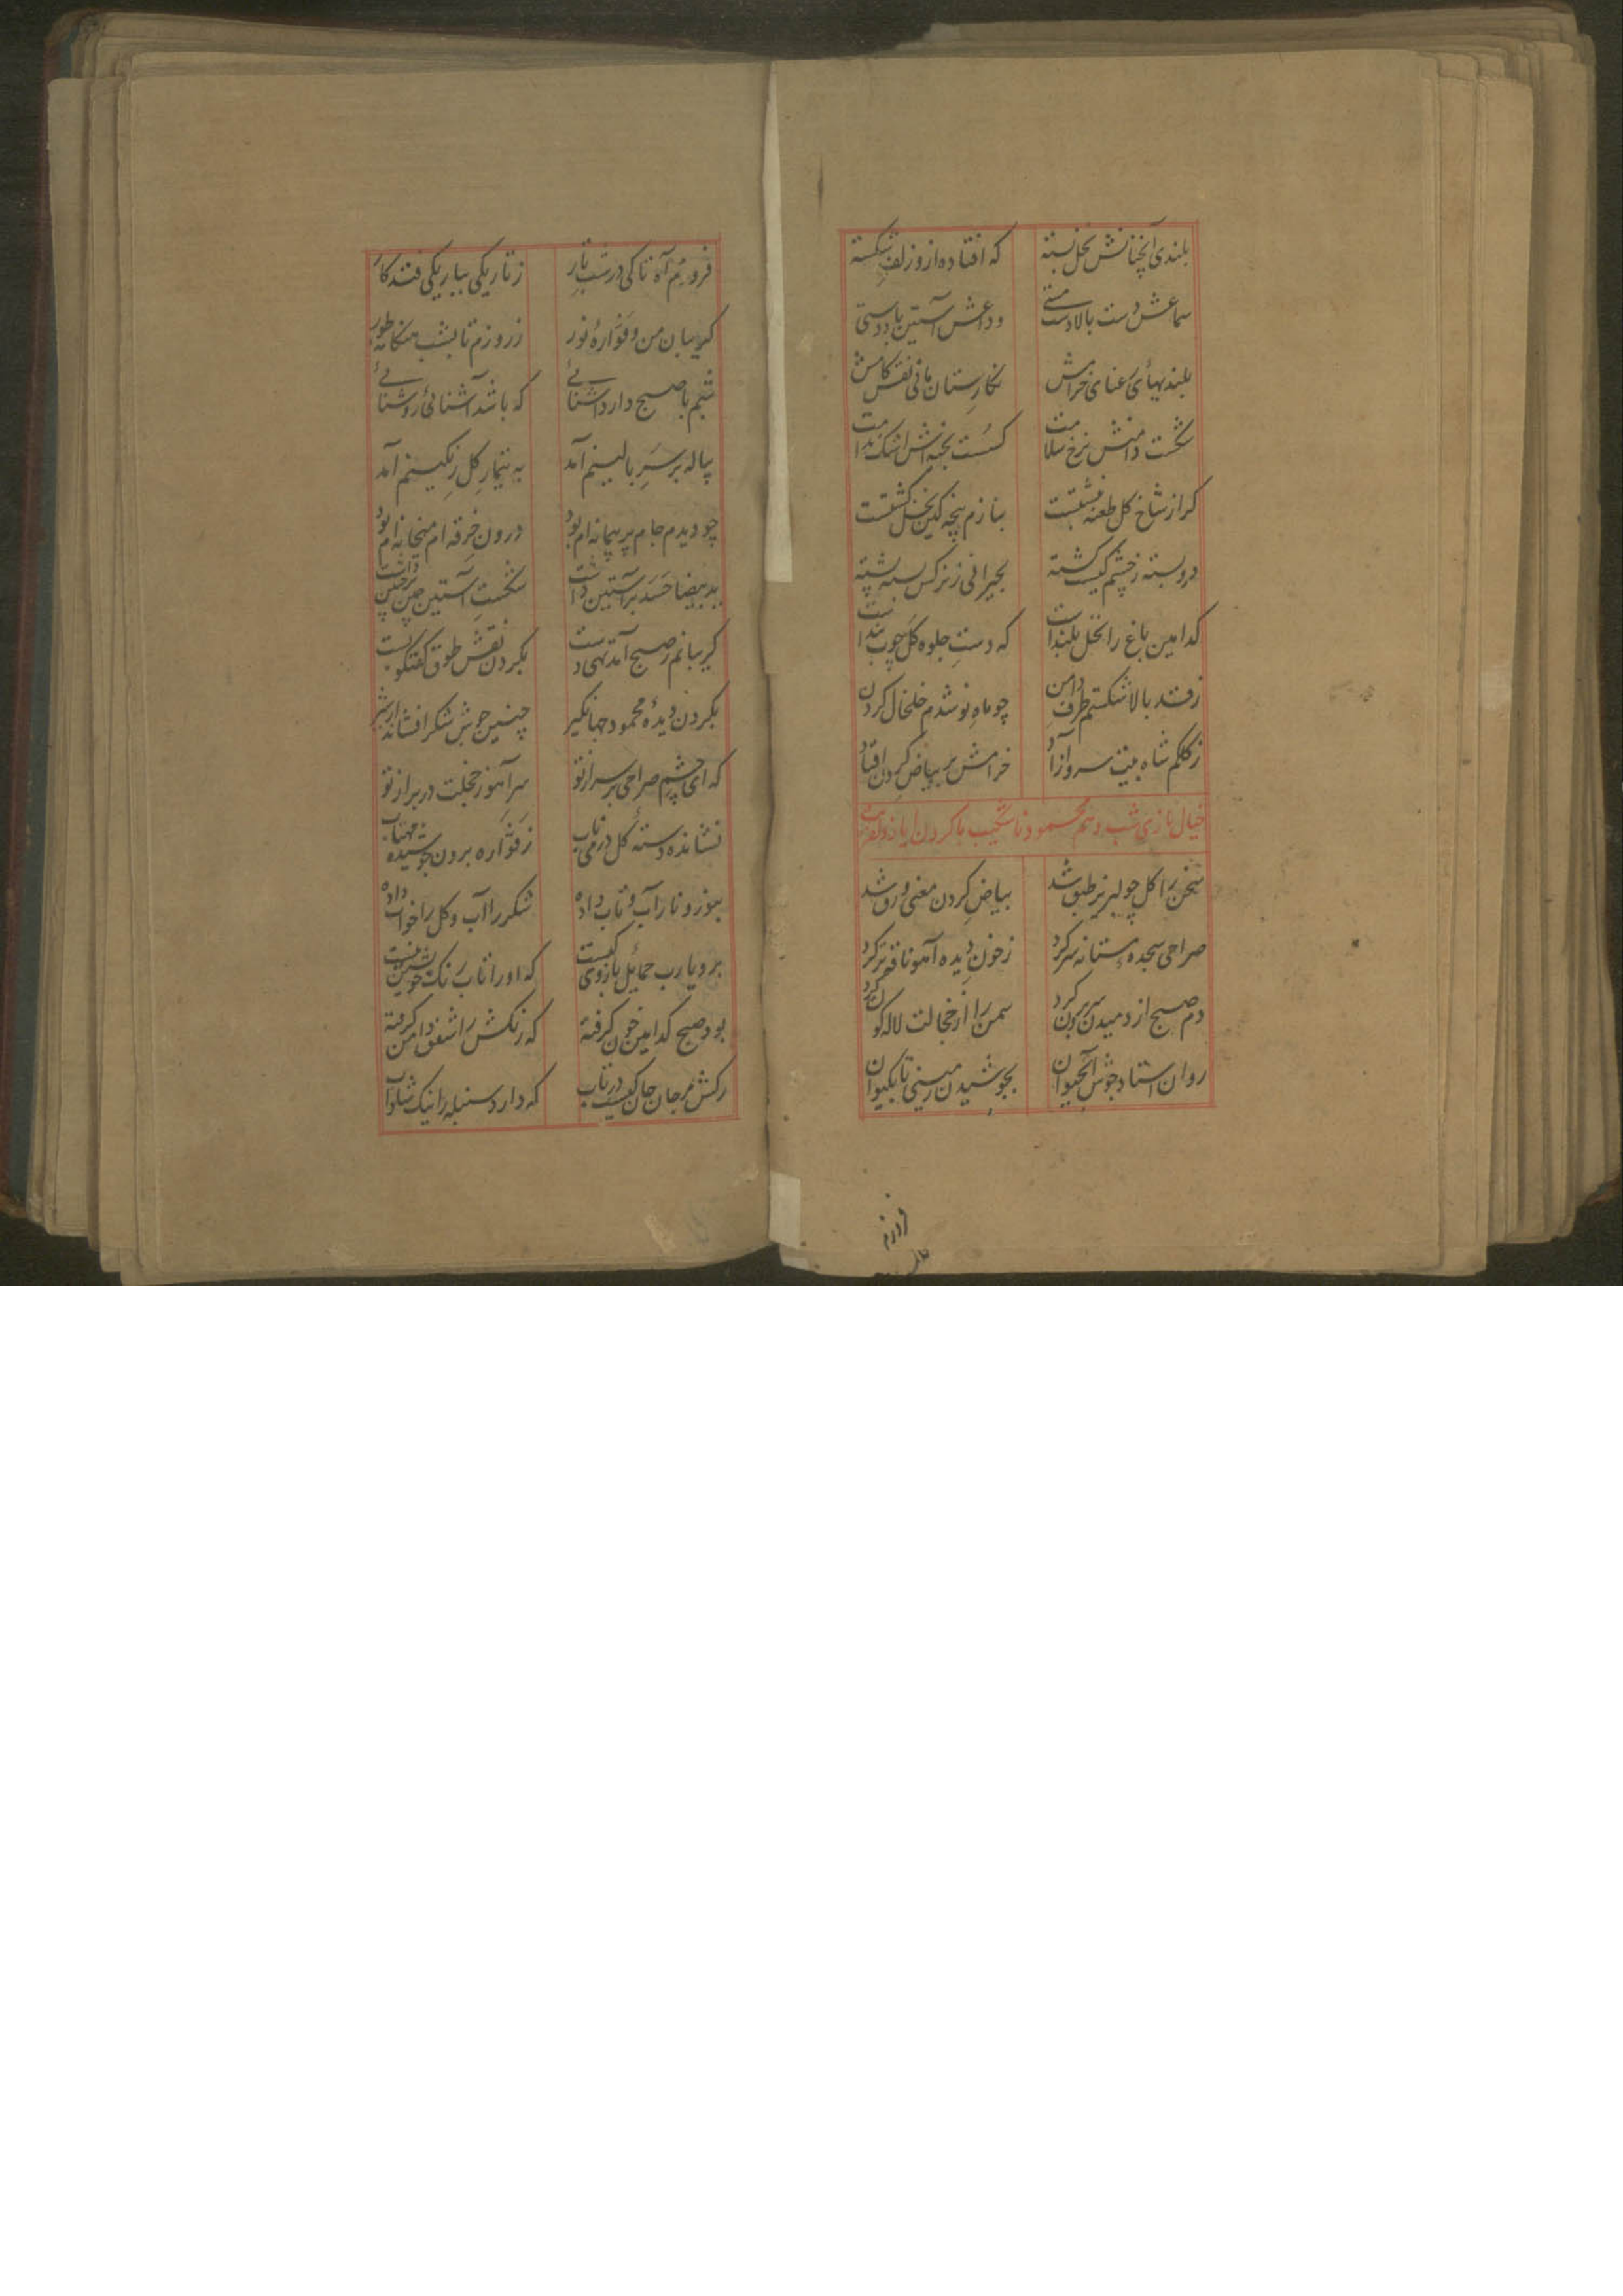 بلندی آنچنانش نخل بسته که افتاده ازو زلف شکسته
سماعش دست بالادستی وداعش آستین با دوستی
بلندیهای رعنای خرامش نگارستان مانی نقش کامش
شکست دامنش نرخ سلامت
کز از شاخ گل طعنه بنازم پنجه کین نخل
در و بسته ز چشم کیست کشته بحیرانی ز نرکس بسته پشته
کدامین باغ را نخل بلند است که دست جلوه کل چوب بند است
بالا شکستم طرف دامن چو ماه نو شدم خلخال کردن
ز کلکم شاه بیت سرو آزاد خرامش بر بیاض کردن افتاد
خیال بازی شب دهم محمود ناشکیب با کردن ایاز
سخن را کل چو لبریز طبق شد بیاض کردن معنی ورق شد
صراحی سجده مستانه سر کرد ز خون دیده آهو نافه تر کرد
دم صبح از دمیدن سر برون کرد سمن را از خجالت لاله کون کرد
روان استاد جوش آبحیوان بجوشیدن زمینی تا بکیوان
فرو بم آه تا کی در شب تار ز تاریکی بباریکی فتد کار
کریبان من و فواره نور ز روزم تا بشب هنکامه طور
شبم با صبح دارد آشنائی که باشد آشنائی روشنائی
پیاله بر سر بالینم آمد به تیمار کل رنکینم آمد
چو دیدم جام پر پیمانه ام بود درون خرقه ام میخانه ام بود
ید بیضا حسد بر آستین داشت شکست آستین چین بر جبین داشت
کریبانم ز صبح آمد تهی دست بکردن نقش طوق گفتگو بست
بکردن دیده محمود جهانکیر چنین جوش شکر افشاند از شیر
که ای چشم صراحی بر سر از تو سر آهو ز خجلت در بر از تو
نشانده دسته کل در می ناب ز فواره برون جوشیده مهتاب
بنوز و نار آب و تاب داده شکر را آب و کل را خواب داده
برو یارب حمایل بازوی کیست که او را تاب رنک
بود صبح کدامین خون کرفته که رنکش را شفق دامن کرفته
رکش مرجان جان کیست در تاب که دارد سنبله را نیک شاداب
فرو بم